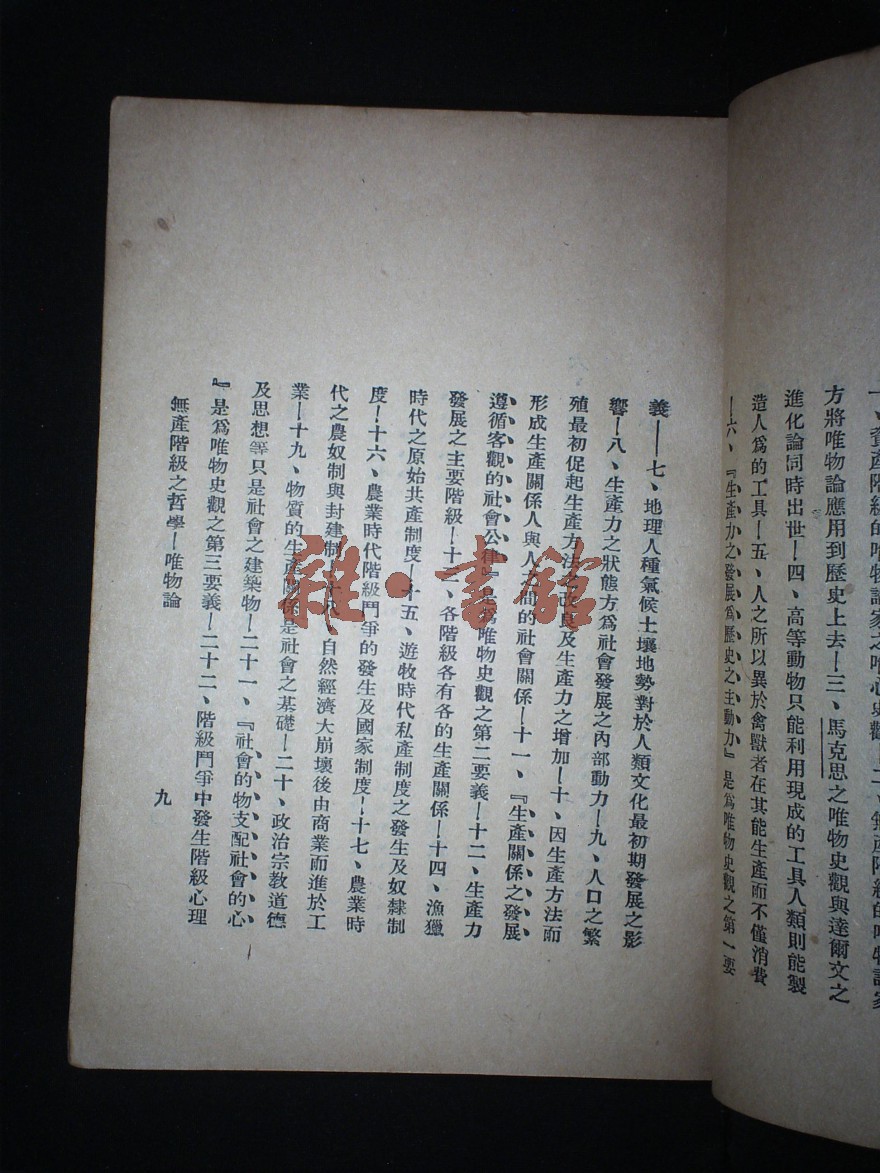 一、資產階級的物論家之唯心史觀—二、無產階級的唯物論家
方將唯物論應用到歷史上去—三、馬克思之唯物史觀與達爾文之
進化論同時出世—四、高等動物只能利用現成的工具人類則能製
造人爲的工具—五、人之所以異於禽獸者在其能生產而不僅消費
—六、『生產力之發展爲歷史之主動力』是爲唯物史觀之第一要
義—七、地理人種氣候土壤地勢對於人類文化最初期發展之影
響—八、生產力之狀態方爲社會發展之內部動力—九、人口之繁
殖最初促起生產方法之改良及生產力之增加—十、因生產方法而
形成生產關係人與人之間的社會關係—十一、『生產關係之發展
遵循客觀的社會公律』是爲唯物史觀之第二要義—十二、生產力
發展之主要階級—十三、各階級各有各的生產關係—十四、漁獵
時代之原始共產制度—十五、遊牧時代私產制度之發生及奴隸制
度—十六、農業時代階級鬥爭的發生及國家制度—十七、農業時
代之農奴制與封建制—十八、自然經濟大崩壞後由商業而進於工
業—十九、物質的生產關係是社會之基礎—二十、政治宗教道德
及思想等只是社會之建築物—二十一、『社會的物支配社會的心
』是爲唯物史觀之第三要義—二十二、階級鬥爭中發生階級心理
無產階級之哲學—唯物論
九
雜·書館